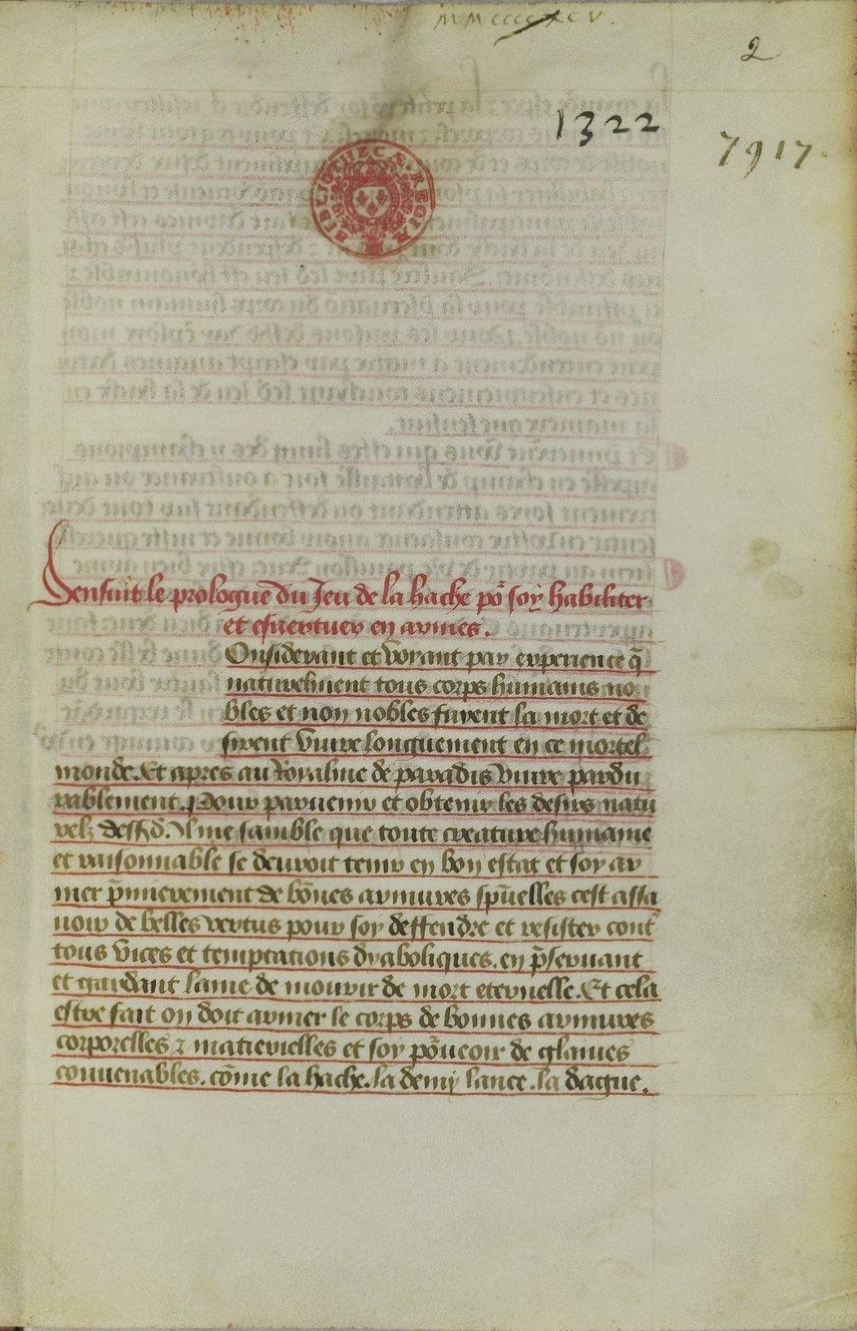 MMccccxcv.
2
1322
7917.
BIBLIOTHECÆ REGIÆ
Sensuit le prologue du Jeu de la hache po^r soy habiliter
et esuertuer en armes.
Onsiderant et voyant par experience q̄
naturelment tous corps humains no
bles et non nobles fuient la mort et de
sirent viure longuement en ce mortel
monde. Et apres au Royalme de paradis viure pardu
rablement. Pour paruenir et obtenir les desirs natu
relz dessd. Il me samble que toute creature humaine
et raisonnable se deuroit tenir en bon estat et soy ar
mer p̄mierement de bōnes armures sp̄uelles cest assa
uoir de belles vertus pour soy deffendre et resister cont^r
tous vices et temptations dyaboliques. en p̄seruant
et gardant lame de mourir de mort eternelle. Et cela
estre fait on doit armer le corps de bonnes armures
corporelles ⁊ materielles et soy po^rueoir de glaiues
conuenables. cōme la hache. la demy lance. la dague.